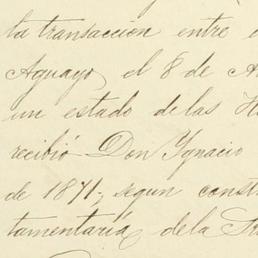 la transaccion entre
Aguayo, el 8 de A
un estado de las H
recibió Don Ygnacio
de 1871, segun const
tamentaría, de la